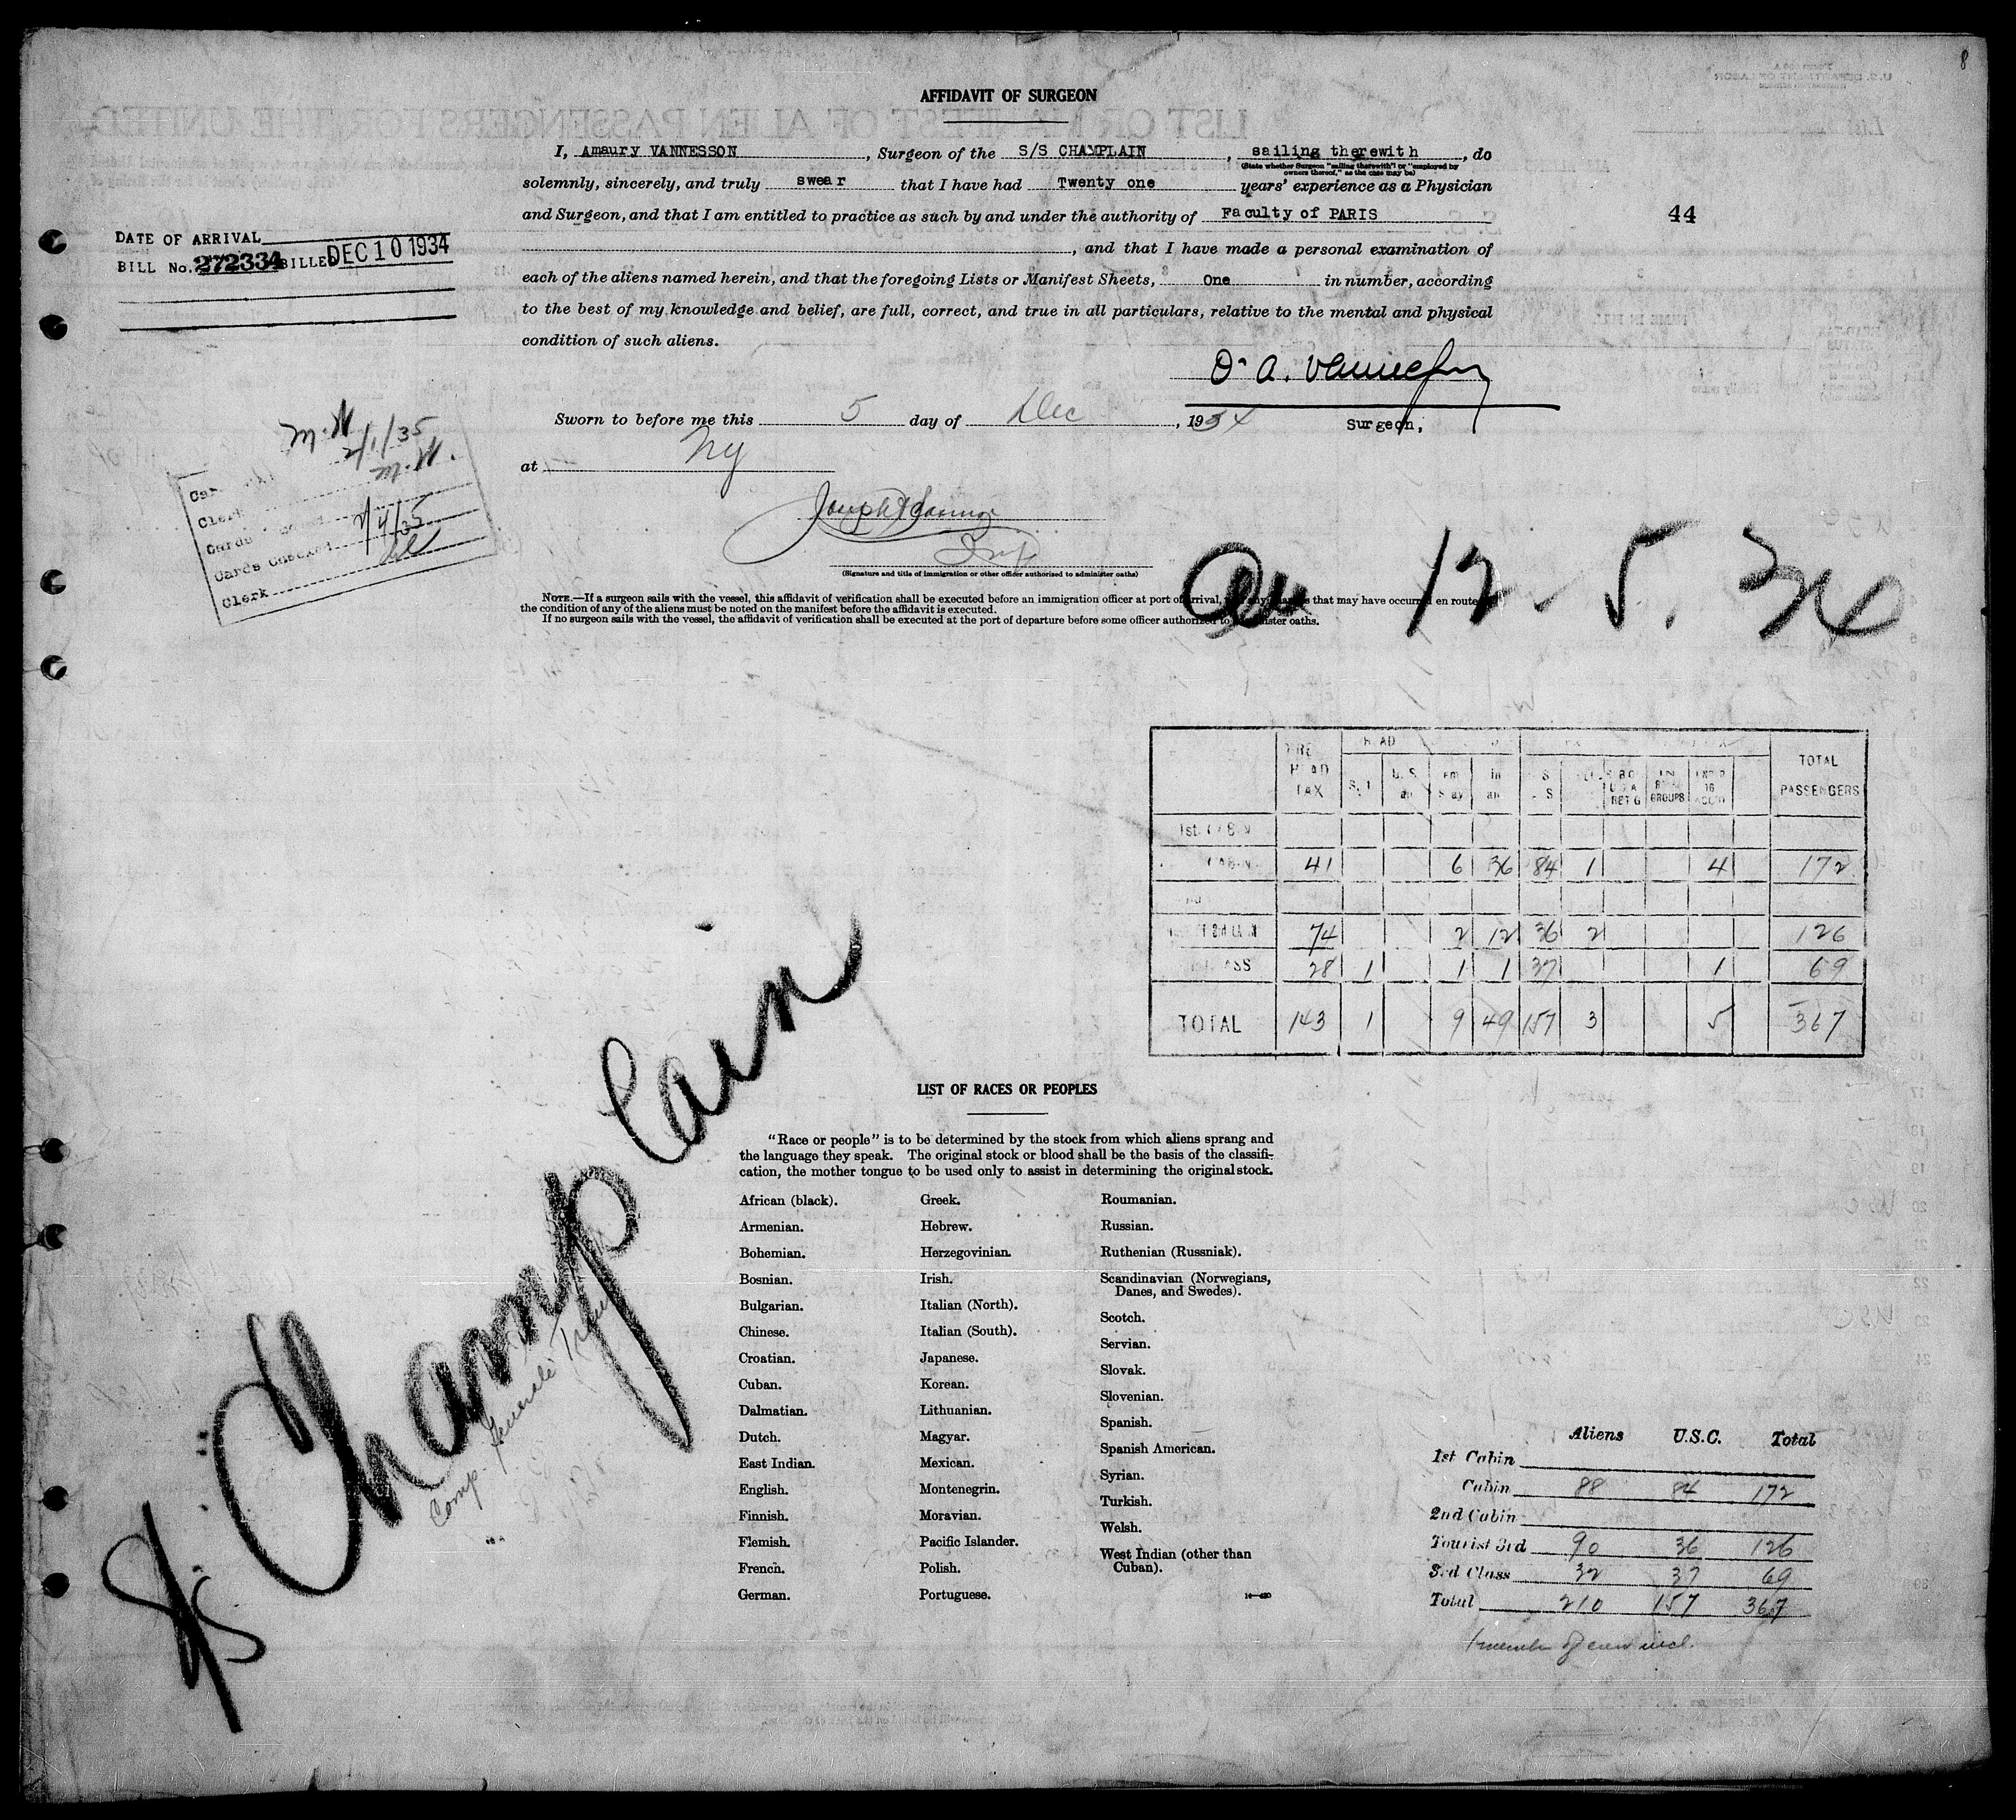 8
AFFIDAVIT OF SURGEON
I, Amaury VANNESSON, Surgeon of the S/S CHAMPLAIN, sailing therewith, do
(State whether Surgeon "sailing therewith" or "employed by
owners thereof," as the case may be)
solemnly, sincerely, and truly swear that I have had Twenty one years' experience as a Physician
and Surgeon, and that I am entitled to practice as such by and under the authority of Faculty of PARIS
, and that I have made a personal examination of
each of the aliens named herein, and that the foregoing Lists or Manifest Sheets, One in number, according
to the best of my knowledge and belief, are full, correct, and true in all particulars, relative to the mental and physical
condition of such aliens.
44
DATE OF ARRIVAL
BILL No. 272334 BILLED DEC 10 1934
Dr A. Vannesson
Surgeon,
Sworn to before me this 5 day of Dec, 1934
at NY
2/1/35
Clerk
Cards
Cards Checked 2/4/35
Clerk
(Signature and title of immigration or other officer authorized to administer oaths)
12-5.34
NOTE.—If a surgeon sails with the vessel, this affidavit of verification shall be executed before an immigration officer at port of arrival, that may have occurred en route
the condition of any of the aliens must be noted on the manifest before the affidavit is executed.
If no surgeon sails with the vessel, the affidavit of verification shall be executed at the port of departure before some officer authorized to administer oaths.
HEAD TAX TOTAL PASSENGERS
1st CABIN
CABIN 41 6 36 84 1 4 172
74 2 12 36 2 126
28 1 1 1 37 1 69
TOTAL 143 1 9 49 157 3 5 367
S/S Champlain
Comp. Generale Trans
LIST OF RACES OR PEOPLES
"Race or people" is to be determined by the stock from which aliens sprang and
the language they speak. The original stock or blood shall be the basis of the classifi-
cation, the mother tongue to be used only to assist in determining the original stock.
African (black).
Armenian.
Bohemian.
Bosnian.
Bulgarian.
Chinese.
Croatian.
Cuban.
Dalmatian.
Dutch.
East Indian.
English.
Finnish.
Flemish.
French.
German.
Greek.
Hebrew.
Herzegovinian.
Irish.
Italian (North).
Italian (South).
Japanese.
Korean.
Lithuanian.
Magyar.
Mexican.
Montenegrin.
Moravian.
Pacific Islander.
Polish.
Portuguese.
Roumanian.
Russian.
Ruthenian (Russniak).
Scandinavian (Norwegians,
Danes, and Swedes).
Scotch.
Servian.
Slovak.
Slovenian.
Spanish.
Spanish American.
Syrian.
Turkish.
Welsh.
West Indian (other than
Cuban).
Aliens U.S.C. Total
1st Cabin
Cabin 88 84 172
2nd Cabin
Tourist 3rd 90 36 126
3rd Class 32 37 69
Total 210 157 367
1 member of crew incl.